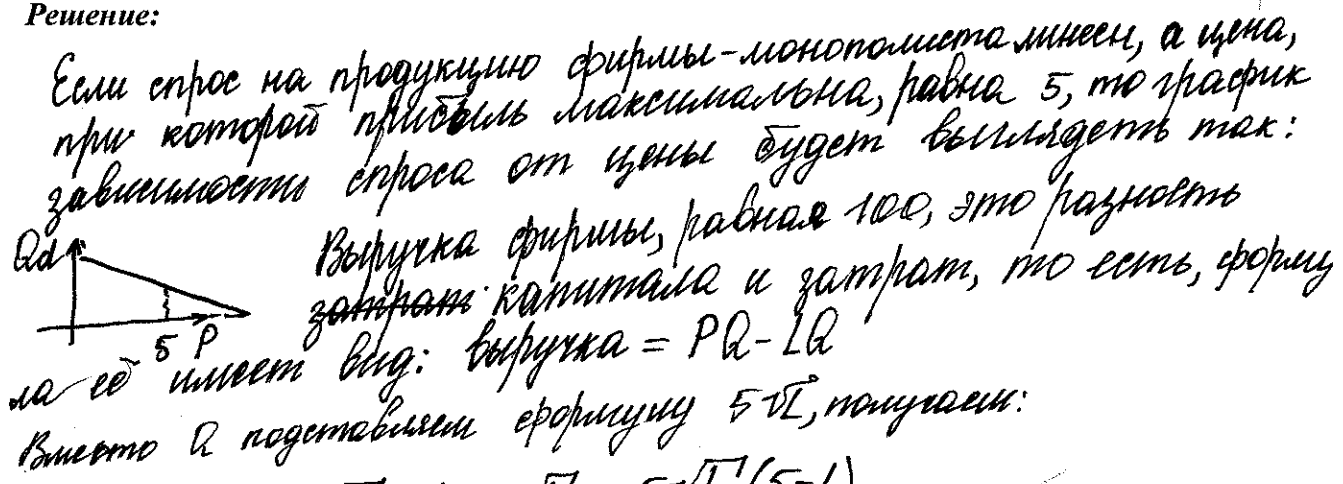 Решение:
Если спрос на продукцию фирмы-монополиста линеен, а цена,
при которой прибыль максимальна, равна 5, то график
зависимости спроса от цены будет выглядеть так:
Qd
5 P
Выручка фирмы, равная 100, это разность
затрат капитала и затрат, то есть, форму
ла её имеет вид: выручка = PQ - LQ
Вместо Q подставляем формулу 5√L, получаем:
5√L (5-L)